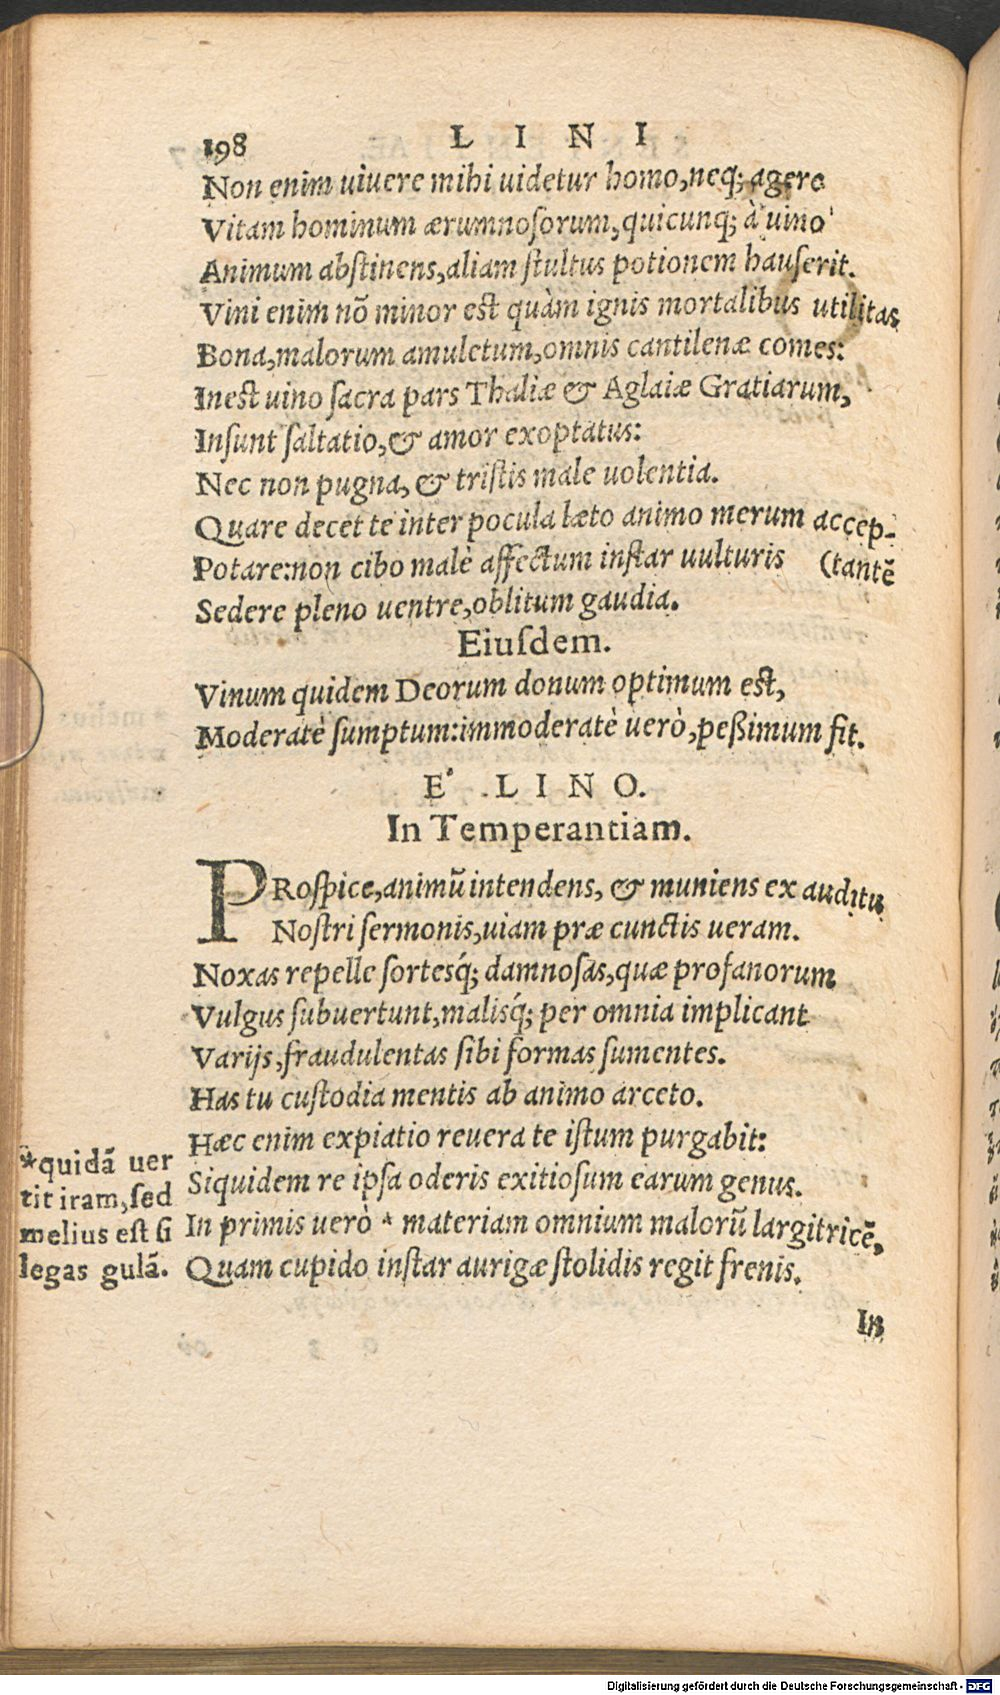 198 LINI
Non enim uiuere mihi uidetur homo, neq; agere
Vitam hominum ærumnosorum, quicunq; à uino
Animum abstinens, aliam stultus potionem hauserit.
Vini enim nõ minor est quàm ignis mortalibus utilitas
Bona, malorum amuletum, omnis cantilenæ comes:
Inest uino sacra pars Thaliæ & Aglaiæ Gratiarum,
Insunt saltatio, & amor exoptatus:
Nec non pugna, & tristis male uolentia.
Quare decet te inter pocula læto animo merum accep-
Potare: non cibo malè affectum instar uulturis (tantē
Sedere pleno uentre, oblitum gaudia.
Eiusdem.
Vinum quidem Deorum donum optimum est,
Moderatè sumptum: immoderatè uerò, peßimum fit.
E' LINO.
In Temperantiam.
PRospice, animũ intendens, & muniens ex auditu
Nostri sermonis, uiam præ cunctis ueram.
Noxas repelle sortesq́; damnosas, quæ profanorum
Vulgus subuertunt, malisq́; per omnia implicant
Varijs, fraudulentas sibi formas sumentes.
Has tu custodia mentis ab animo arceto.
Hæc enim expiatio reuera te istum purgabit:
Siquidem re ipsa oderis exitiosum earum genus.
In primis uerò * materiam omnium malorũ largitricẽ,
Quam cupido instar aurigæ stolidis regit frenis.
*quidã uer
tit iram, sed
melius est si
legas gulã.
In
Digitalisierung gefördert durch die Deutsche Forschungsgemeinschaft - DFG